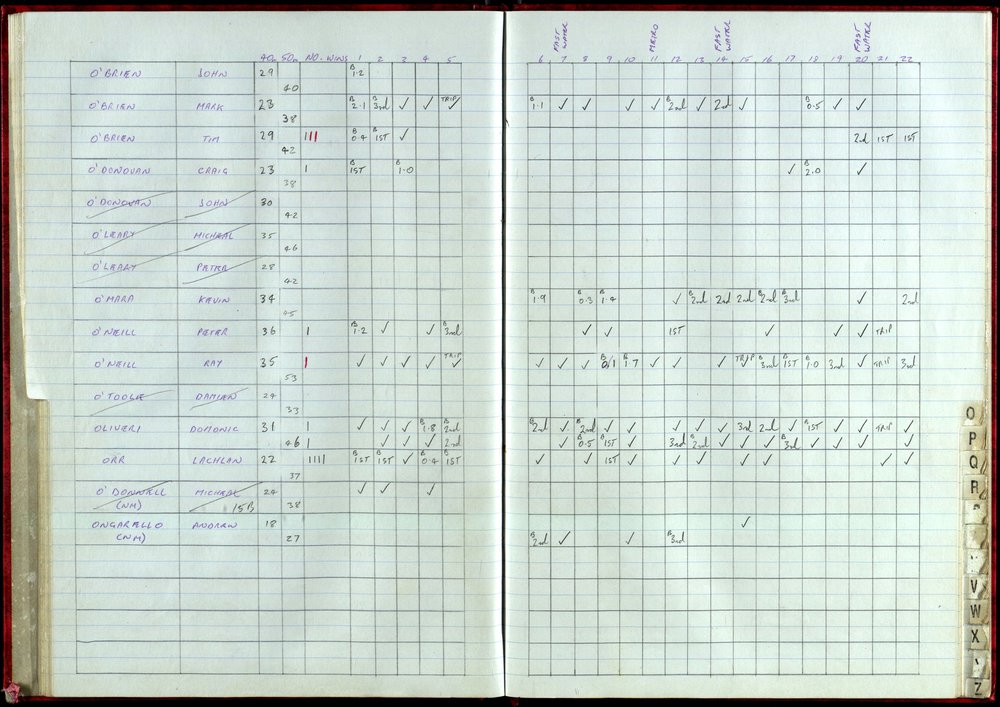 FAST WATER METRO FAST WATER FAST WATER
40m 50m NO. WINS 1 2 3 4 5 6 7 8 9 10 11 12 13 14 15 16 17 18 19 20 21 22
O'BRIEN JOHN 29 B 1.2
40
O'BRIEN MARK 23 B 2.1 B 3rd ✓ ✓ TRIP ✓ B 1.1 ✓ ✓ ✓ ✓ B 2nd ✓ 2nd ✓ B 0.5 ✓ ✓
38
O'BRIEN TIM 29 |||| B 0.4 B 1ST ✓ 2nd 1ST 1ST
42
O'DONOVAN CRAIG 23 | B 1ST B 1.0 ✓ B 2.0 ✓
38
O'DONOVAN JOHN 30
42
O'LEARY MICHEAL 35
46
O'LEARY PETER 28
42
O'MARA KEVIN 34 B 1.9 B 0.3 B 1.4 ✓ B 2nd 2nd 2nd B 2nd B 3rd ✓ 2nd
45
O'NEILL PETER 36 | B 1.2 ✓ ✓ B 2nd ✓ ✓ 1ST ✓ ✓ ✓ TRIP
O'NEILL RAY 35 | ✓ ✓ ✓ ✓ TRIP ✓ ✓ ✓ ✓ B 0.1 B 1.7 ✓ ✓ ✓ TRIP ✓ B 3rd B 1ST B 1.0 3rd ✓ TRIP 3rd
53
O'TOOLE DAMIEN 24
33
OLIVERI DOMONIC 31 | ✓ ✓ B 1.8 B 2nd B 2nd ✓ B 2nd ✓ ✓ ✓ ✓ 3rd 2nd ✓ B 1ST ✓ ✓ TRIP ✓
46 | ✓ ✓ ✓ 2nd ✓ B 0.5 B 1ST ✓ 3rd B 2nd ✓ ✓ ✓ B 3rd ✓ ✓ ✓ ✓
ORR LACHLAN 22 |||| B 1ST B 1ST ✓ B 0.4 B 1ST ✓ ✓ 1ST ✓ ✓ ✓ ✓ ✓ ✓ ✓
37
O'DONNELL MICHEAL 24 ✓ ✓ ✓
(NM) 15B 38
ONGARELLO ANDREW 18 ✓
(NM) 27 B 2nd ✓ ✓ B 3rd
O
P
Q
R
V
W
X
Z